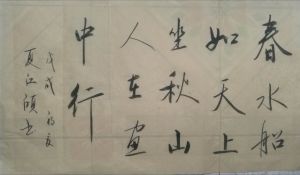 春水船
如天上
坐秋山
人在画
中行
戊戌
夏江硕书